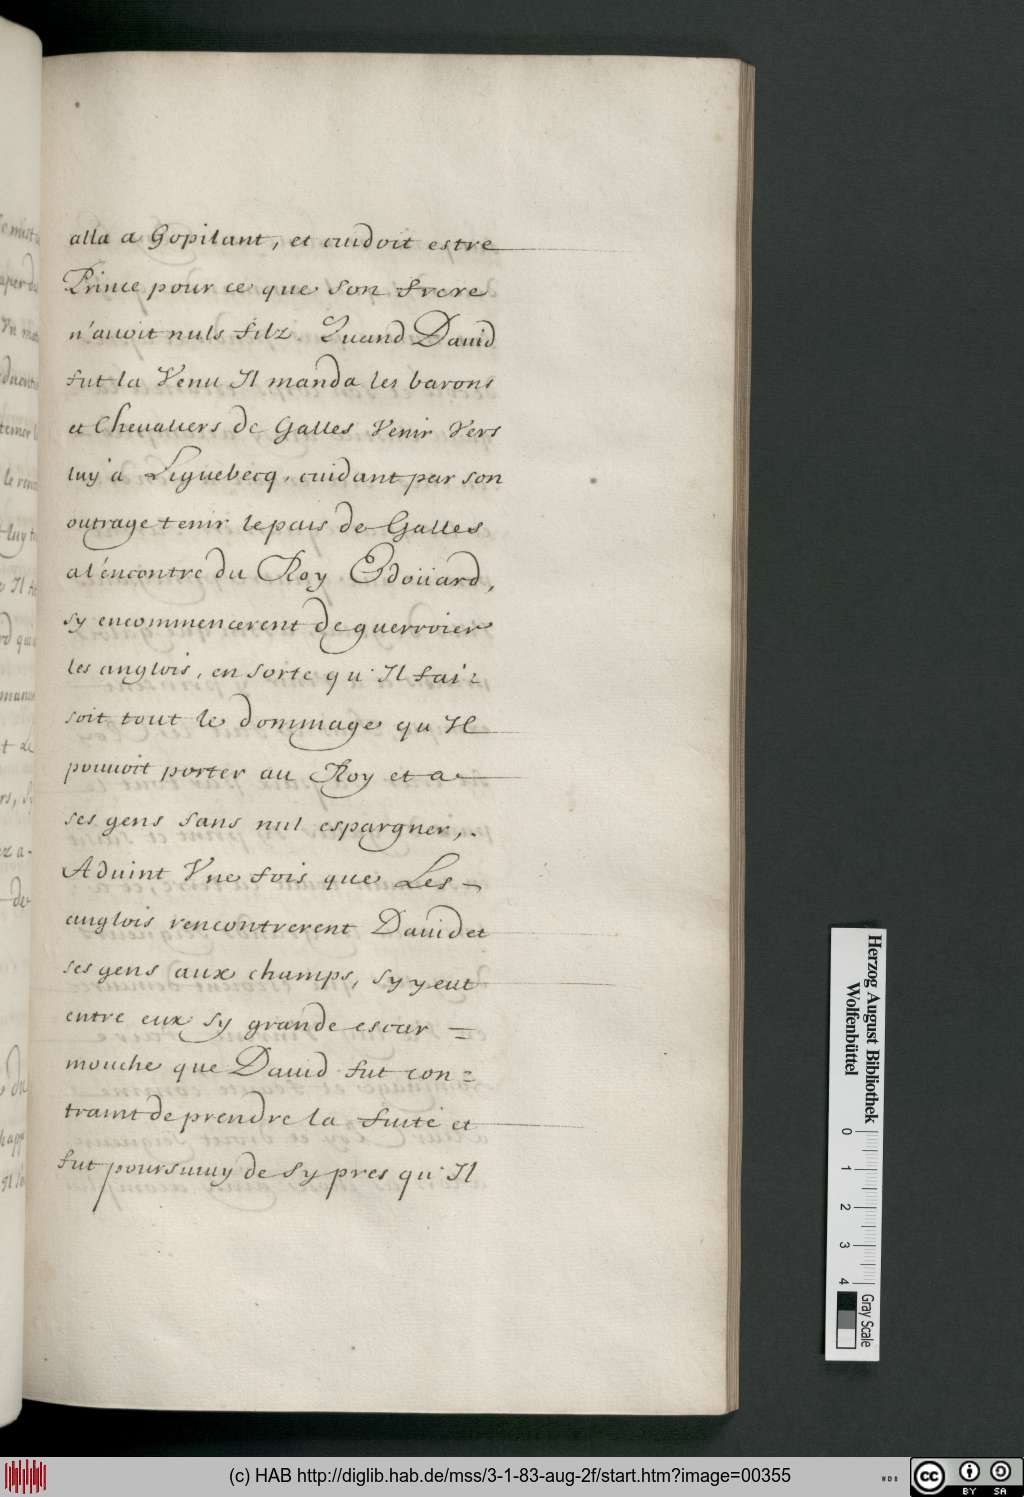 alla a Gopilant, et cuidoit estre
Prince pour ce que son frere
n'auoit nuls filz. Quand Dauid
fut la Venu Il manda les barons
et Cheualiers de Galles Venir Vers
luy a Liguebecq, cuidant par son
outrage tenir le pais de Galles
a l'encontre du Roy Edoüard,
sy encommencerent de guerroier
les anglois, en sorte qu'Il fai:
soit tout le dommage qu'Il
pouuoit porter au Roy et a
ses gens sans nul espargner,.
Aduint Vne fois que Les
anglois rencontrerent Dauid et
ses gens aux champs, sy y eut
entre eux sy grande escar=
mouche que Dauid fut con=
traint de prendre la fuite et
fut poursuiuy de sy pres qu'Il
Herzog August Bibliothek
Wolfenbüttel
0 1 2 3 4
Gray Scale
(c) HAB http://diglib.hab.de/mss/3-1-83-aug-2f/start.htm?image=00355
cc BY SA